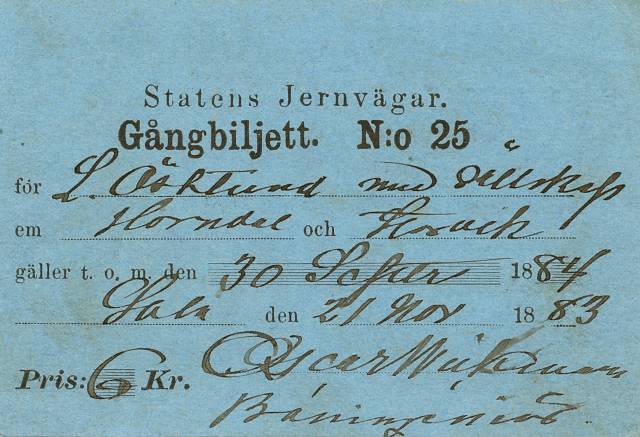 Statens Jernvägar.
Gångbiljett. N:o 25
för L. Östlund med sällskap
em Horndal och Storvik
gäller t. o. m. den 30 Septer 1884
Sala den 21 Nov 1883
Pris: 6 Kr. Oscar Wijkman
Baningeniör.